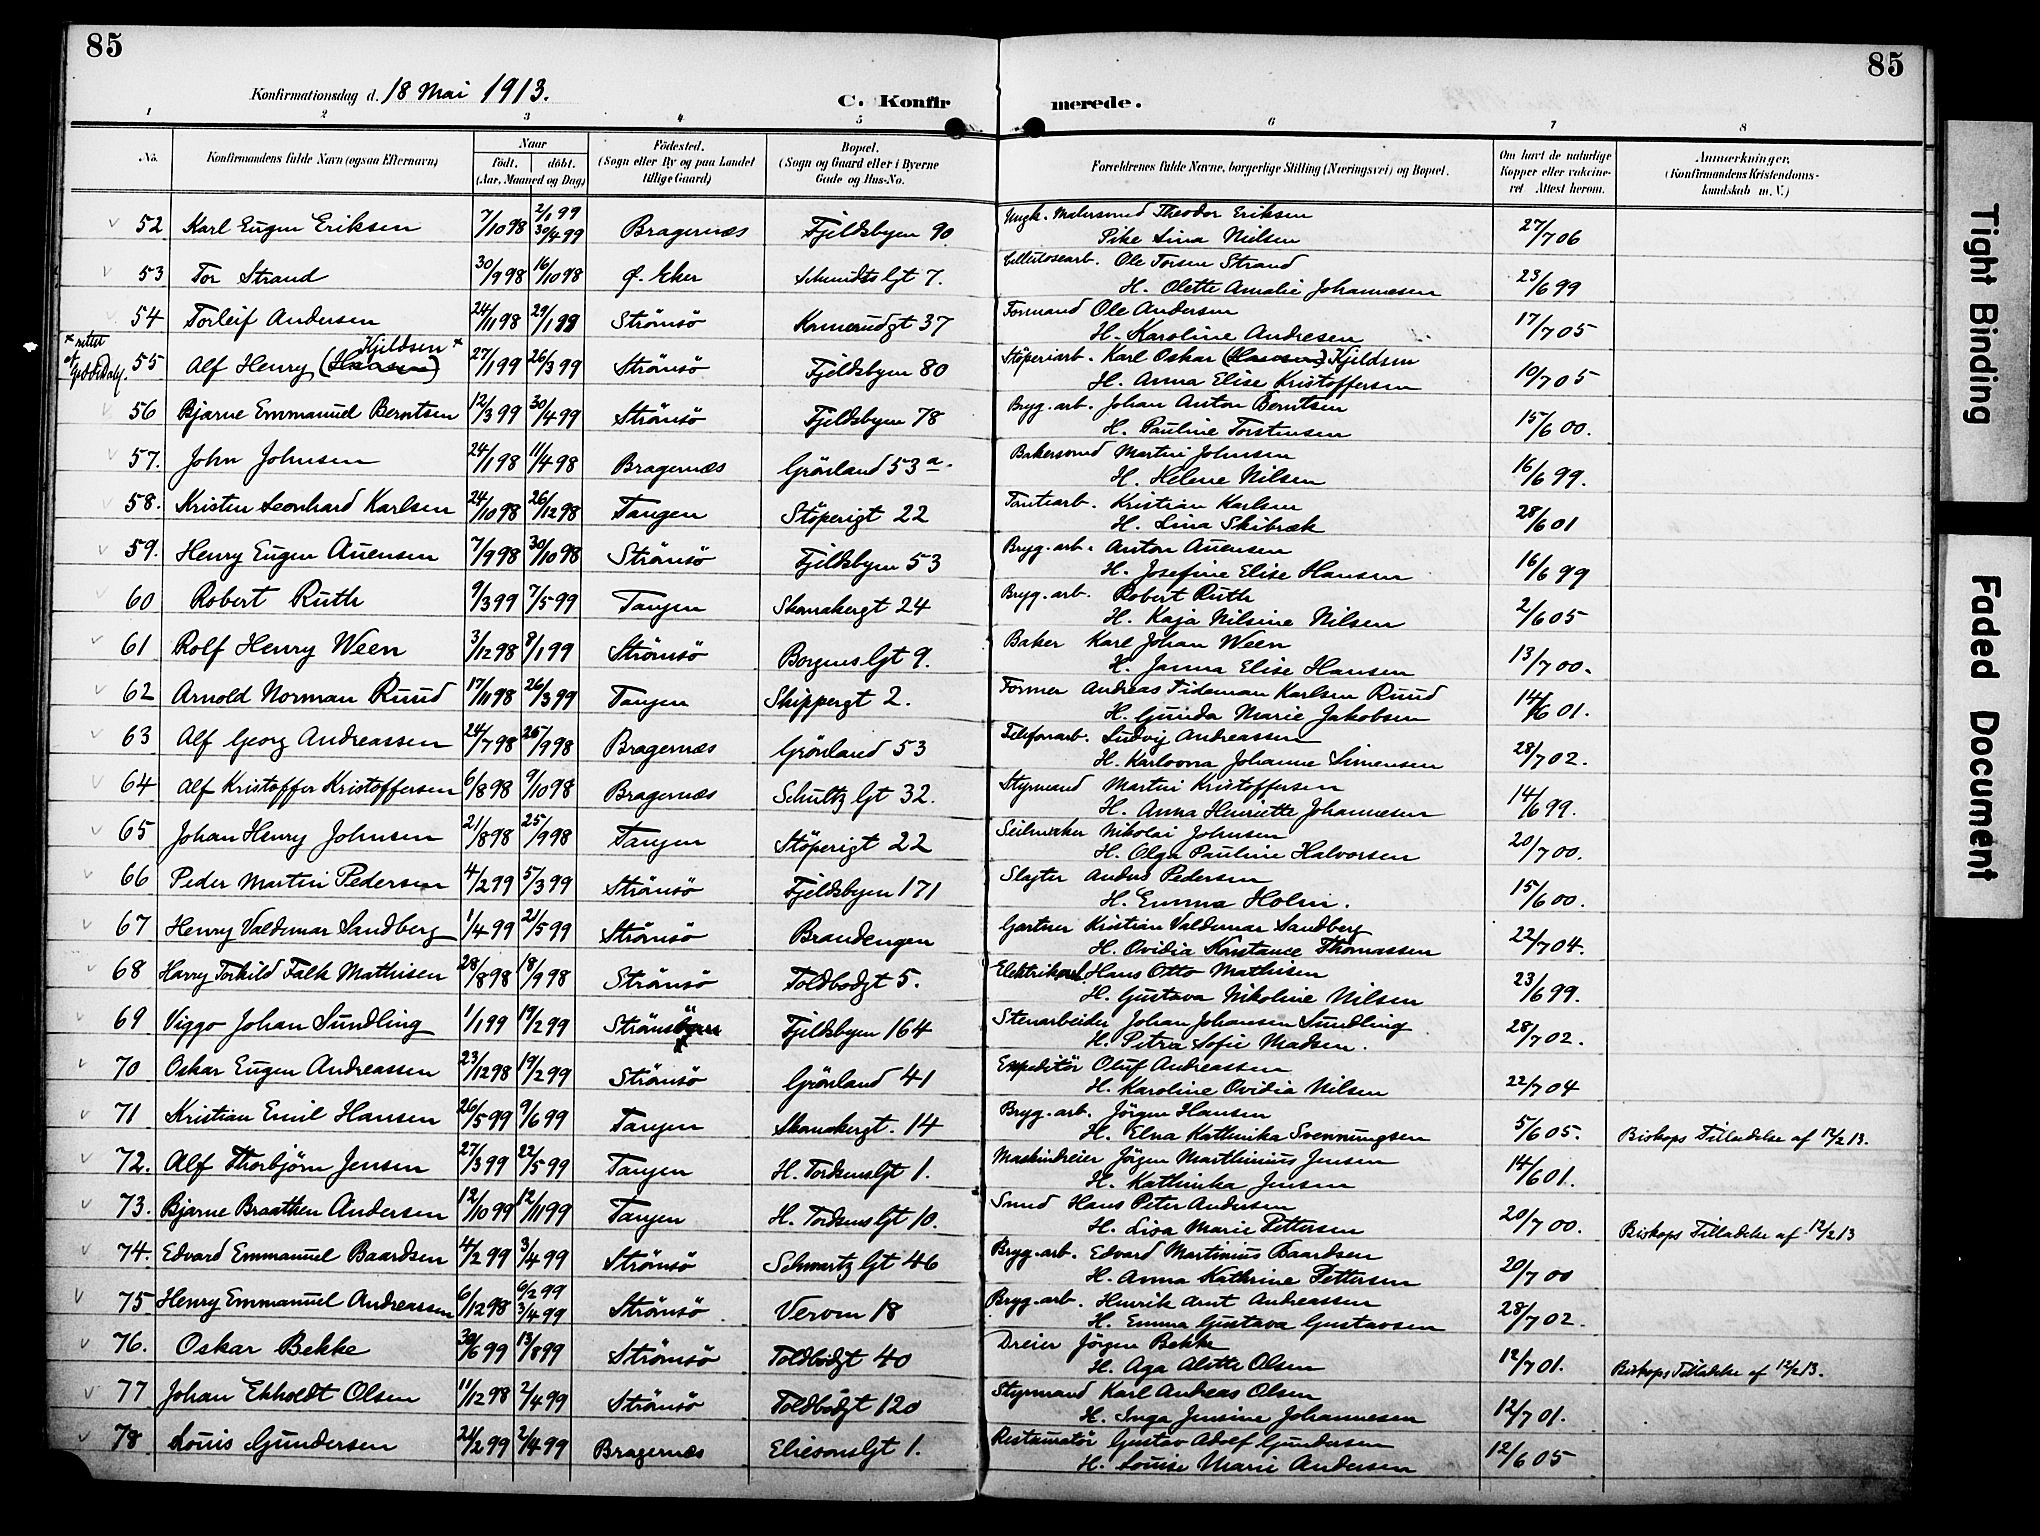 85
85
Konfirmationsdag d. 18 Mai 1913.
C. Konfir merede.
1 2 3 4 5 6 7 8
No. Konfirmandens fulde Navn (ogsaa Efternavn) Naar født. døbt. (Aar, Maaned og Dag) Fødested. (Sogn eller By og paa Landet tillige Gaard) Bopæl. (Sogn og Gaard eller i Byerne Gade og Hus-No. Forældrenes fulde Navne, borgerlige Stilling (Næringsvei) og Bopæl. Om havt de naturlige Kopper eller vakcineret. Attest herom. Anmærkninger, (Konfirmandens Kristendomskundskab m. V.)
52 Karl Eugen Eriksen 7/10 98 2/1 99 30/4 99 Bragernæs Fjeldsbyen 90 Ungk. Malersvend Theodor Eriksen
Pike Lina Nielsen 27/7 06
53 Tor Strand 30/9 98 16/10 98 Ø. Eker Schmidts Gt 7. Cellulosearb. Ole Torsen Strand
H. Olette Amalie Johannesen 23/6 99
54 Torleif Andersen 24/11 98 29/1 99 Strömsö Kornerudgt 37 Formand Ole Andersen
H. Karoline Andresen 17/7 05
× rettet af
55 Alf Henry (Hansen) Kjeldsen × 27/1 99 26/3 99 Strömsö Fjeldsbyen 80 Stöperiarb. Karl Oskar (Hansen) Kjeldsen
H. Anna Elise Kristoffersen 10/7 05
56 Bjarne Emmanuel Berntsen 12/3 99 30/4 99 Strömsö Fjeldsbyen 78 Bryg. arb. Johan Anton Berntsen
H. Pauline Torstensen 15/6 00.
57. John Johnsen 24/1 98 11/4 98 Bragernæs Grönland 53 a. Bakersvend Martin Johnsen
H. Helene Nilsen 16/6 99.
58. Kristen Leonhard Karlsen 24/10 98 26/12 98 Tangen Stöperigt 22 Tomtearb. Kristian Karlsen
H. Lina Skibræk 28/6 01
59. Henry Eugen Auensen 7/9 98 30/10 98 Strömsö Fjeldsbyen 53 Bryg. arb. Anton Auensen
H. Josefine Elise Hansen 16/6 99
60 Robert Ruth 9/3 99 7/5 99 Tangen Skomakergt 24 Bryg. arb. Robert Ruth
H. Kaja Nilsine Nilsen 2/6 05
61 Rolf Henry Ween 3/12 98 8/1 99 Strömsö Borgens Gt 9. Baker Karl Johan Ween
H. Janna Elise Hansen 13/7 00.
62 Arnold Norman Ruud 17/11 98 26/3 99 Tangen Skippergt 2. Former Andreas Tideman Karlsen Ruud
H. Gunda Marie Jakobsen 14/6 01.
63 Alf Georg Andreassen 24/7 98 25/9 98 Bragernæs Grönland 53 Telefonarb. Ludvig Andreassen
H. Karlovna Johanne Simensen 28/7 02.
64 Alf Kristoffer Kristoffersen 6/8 98 9/10 98 Bragernæs Schultz Gt 32. Styrmand Martin Kristoffersen
H. Anna Henriette Johannesen 14/6 99.
65 Johan Henry Johnsen 21/8 98 25/9 98 Tangen Stöperigt 22 Seilmaker Nikolai Johnsen
H. Olga Pauline Halvorsen 20/7 00.
66 Peder Martin Pedersen 4/2 99 5/3 99 Strömsö Fjeldsbyen 171 Slagter Anders Pedersen
H. Emma Holm. 15/6 00.
67 Henry Valdemar Sandberg 1/4 99 21/5 99 Strömsö Brandengen Gartner Kristian Valdemar Sandberg
H. Ovidia Konstance Thomassen 22/7 04.
68 Harry Torkild Falk Mathisen 28/8 98 18/9 98 Strömsö Toldbodgt 5. Elektrikarb. Hans Otto Mathisen
H. Gustava Nikoline Nilsen 23/6 99.
69 Viggo Johan Sundling 1/1 99 19/2 99 Strömsö Fjeldsbyen 164 Stenarbeider Johan Johansen Sundling
H. Petra Sofie Madsen. 28/7 02.
70 Oskar Eugen Andreassen 23/12 98 19/2 99 Strömsö Grönland 41 Expeditör Oluf Andreassen
H. Karoline Ovidia Nilsen 22/7 04
71 Kristian Emil Hansen 26/5 99 9/6 99 Tangen Skomakergt. 14 Bryg. arb. Jörgen Hansen
H. Elna Kathinka Svennungsen 5/6 05. Biskops Tilladelse af 12/2 13.
72. Alf Thorbjörn Jensen 27/3 99 22/5 99 Tangen H. Tordens Gt 1. Maskindreier Jörgen Marthinius Jensen
H. Kathinka Jensen 14/6 01.
73. Bjarne Braathen Andersen 12/10 99 12/11 99 Tangen H. Tordens Gt 10. Smed Hans Peter Andersen
H. Lisa Marie Pettersen 20/7 00. Biskops Tilladelse af 12/2 13
74. Edvard Emmanuel Baardsen 4/2 99 3/4 99 Strömsö Schwartz Gt 46 Bryg. arb. Edvard Martinius Baardsen
H. Anna Kathrine Pettersen 20/7 00
75 Henry Emmanuel Andreassen 6/12 98 6/2 99 3/4 99 Strömsö Verven 18 Bryg. arb. Henrik Arnt Andreassen
H. Emma Gustava Gustavsen 28/7 02.
76. Oskar Bekke 30/6 99 13/8 99 Strömsö Toldbodgt 40 Dreier Jörgen Bekke
H. Aga Alette Olsen 12/7 01. Biskops Tilladelse af 12/2 13.
77 Johan Ekholdt Olsen 11/12 98 2/4 99 Strömsö Toldbodgt 120 Styrmand Karl Andreas Olsen
H. Inga Jensine Johannesen 12/7 01.
78 Louis Gundersen 24/2 99 2/4 99 Bragernæs Eliesons Gt 1. Restauratör Gustav Adolf Gundersen
H. Louise Marie Andersen 12/6 05
Tight Binding
Faded Document